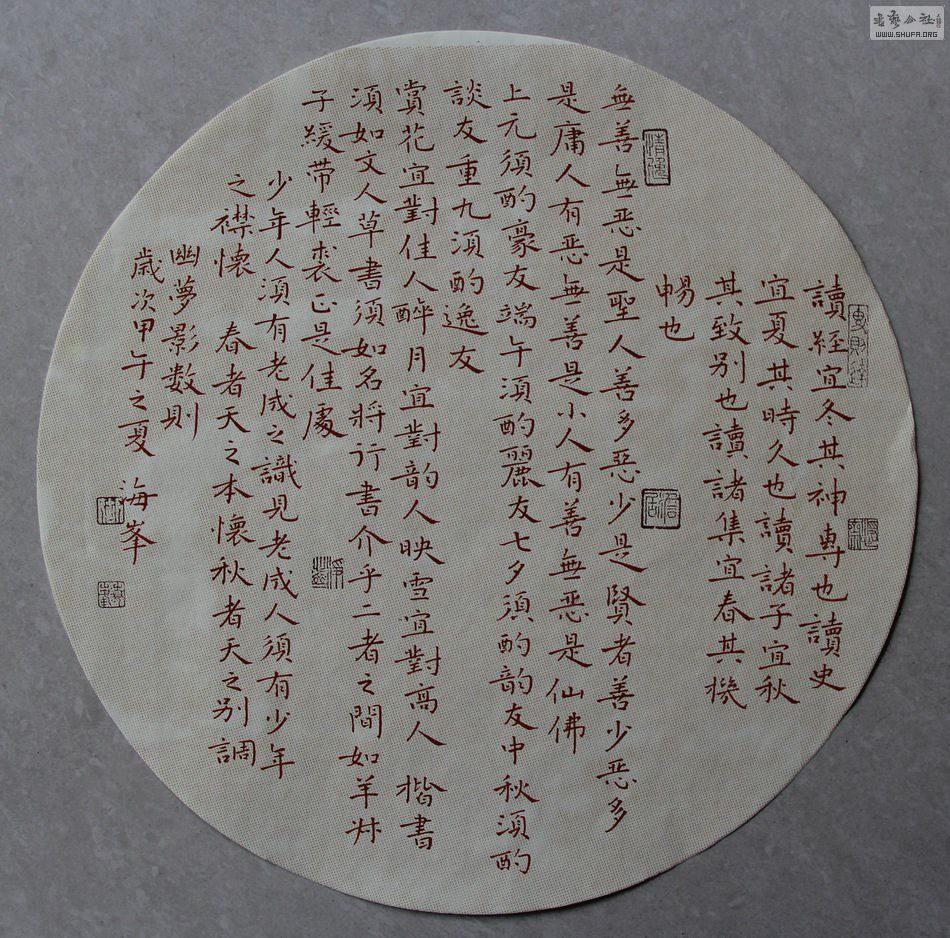 讀經宜冬其神專也讀史
宜夏其時久也讀諸子宜秋
其致別也讀諸集宜春其機
暢也
無善無惡是聖人善多惡少是賢者善少惡多
是庸人有惡無善是小人有善無惡是仙佛
上元須酌豪友端午須酌麗友七夕須酌韵友中秋須酌
談友重九須酌逸友
賞花宜對佳人醉月宜對韵人映雪宜對高人 楷書
須如文人草書須如名將行書介乎二者之間如羊叔
子緩帶輕裘正是佳處
少年人須有老成之識見老成人須有少年
之襟懷 春者天之本懷秋者天之別調
幽夢影數則
歲次甲午之夏 海峯
WWW.SHUFA.ORG